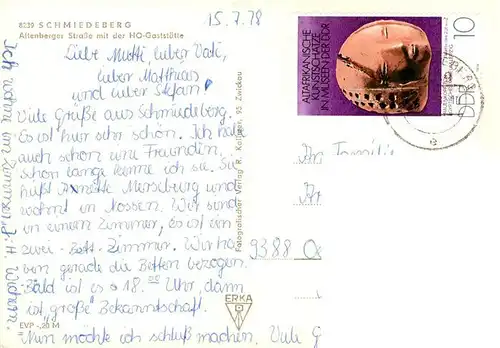 8239 SCHMIEDEBERG
Altenberger Straße mit der HO-Gaststätte
15.7.78
Liebe Mutti, lieber Vati,
lieber Matthias
und lieber Stefan!
Viele Grüße aus Schmiedeberg.
Es ist hier sehr schön. Ich habe
auch schon eine Freundin,
schon lange kenne ich sie. Sie
heißt Annette Merseburg und
wohnt in Nossen. Wir sind
in einem Zimmer, Es ist ein
zwei-Bett-Zimmer. Wir ha-
ben gerade die Betten bezogen.
Bald ist es 18.00 Uhr, dann
ist "große" Bekanntschaft.
Nun möchte ich schluß machen. Viele G
EVP -,20 M
Ich wohne im Zimmer
Fotografischer Verlag R. Kallmer, 95 Zwickau
ERKA
ALTAFRIKANISCHE
KUNSTSCHÄTZE
IN MUSEEN DER DDR
10
DDR
An Familie
9388